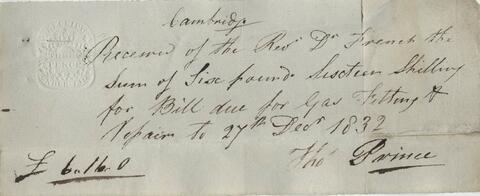 Cambridge
Received of the Revd Dr French the
Sum of Six pounds Sixteen Shilling
for Bill due for Gas Fitting &
Repairs to 27th Decr 1832
Thos Prince
£ 6.16.0